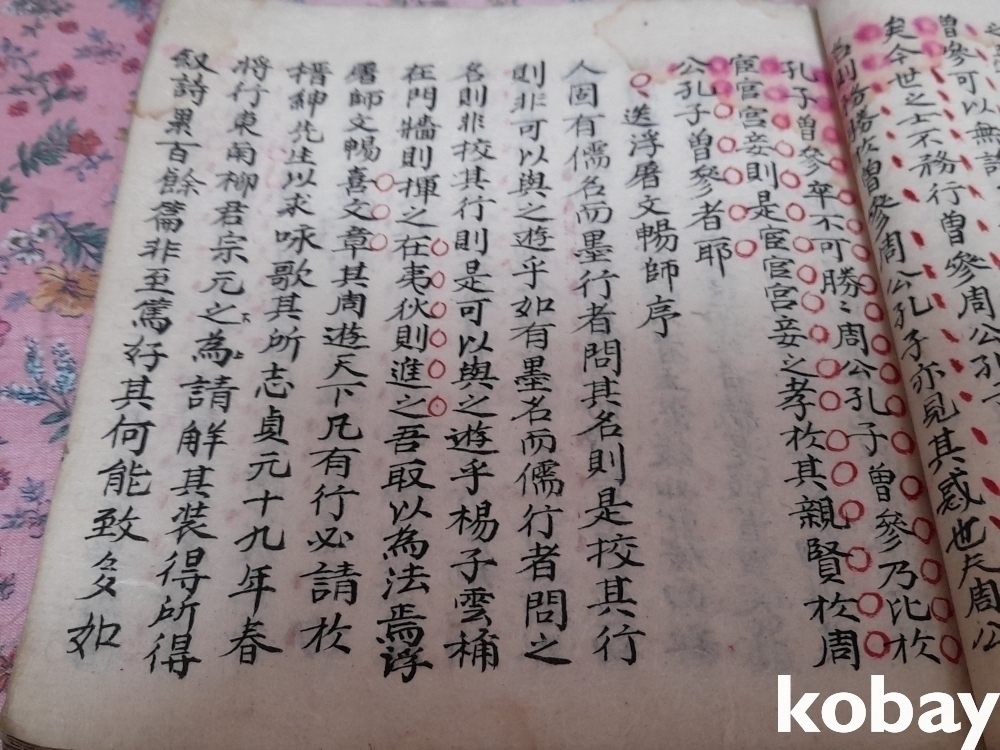 曾參可以無譏
矣今世之士不務行曾參周公孔子
曾參周公孔子亦見其惑也夫周公
孔子曾參卒不可勝〻周公孔子曾參乃比於
宦官宮妾則是宦官宮妾之孝於其親賢於周
公孔子曾參者耶
送浮屠文暢師序
人固有儒名而墨行者問其名則是挍其行
則非可以與之遊乎如有墨名而儒行者問之
名則非挍其行則是可以與之遊乎楊子雲稱
在門牆則揮之在夷狄則進之吾取以為法焉浮
屠師文暢喜文章其周遊天下凡有行必請於
搢紳先生以求咏歌其所志貞元十九年春
將行東南柳君宗元之為請解其裝得所得
叙詩累百餘篇非至篤好其何能致多如
kobay